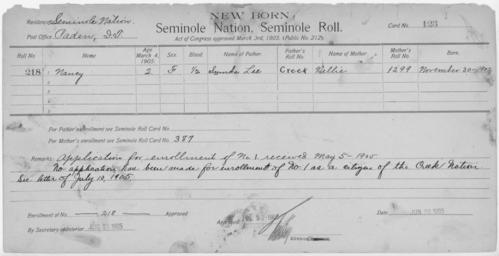 NEW BORN
Residence Seminole Nation.
Seminole Nation. Seminole Roll.
Card No. 123
Post Office, Paden, I.T.
Act of Congress approved March 3rd, 1905. (Public No. 212).
Roll No. Name Age March 4, 1905. Sex. Blood Name of Father Father's Roll No. Name of Mother Mother's Roll No. Born.
218 1 Nancy 2 F 1/2 Lee Creek Nellie 1299 November 20-
2
3
4
For Father's enrollment see Seminole Roll Card No.
For Mother's enrollment see Seminole Roll Card No. 387
Remarks: Application for enrollment of No. 1. received May 5-1905
No application has been made for enrollment of No. 1 as a citizen of the Creek Nation
See letter of July 10, 1905.
Enrollment of No. 218 Approved
Approved
Dated JUN 1905
By Secretary of Interior 1905